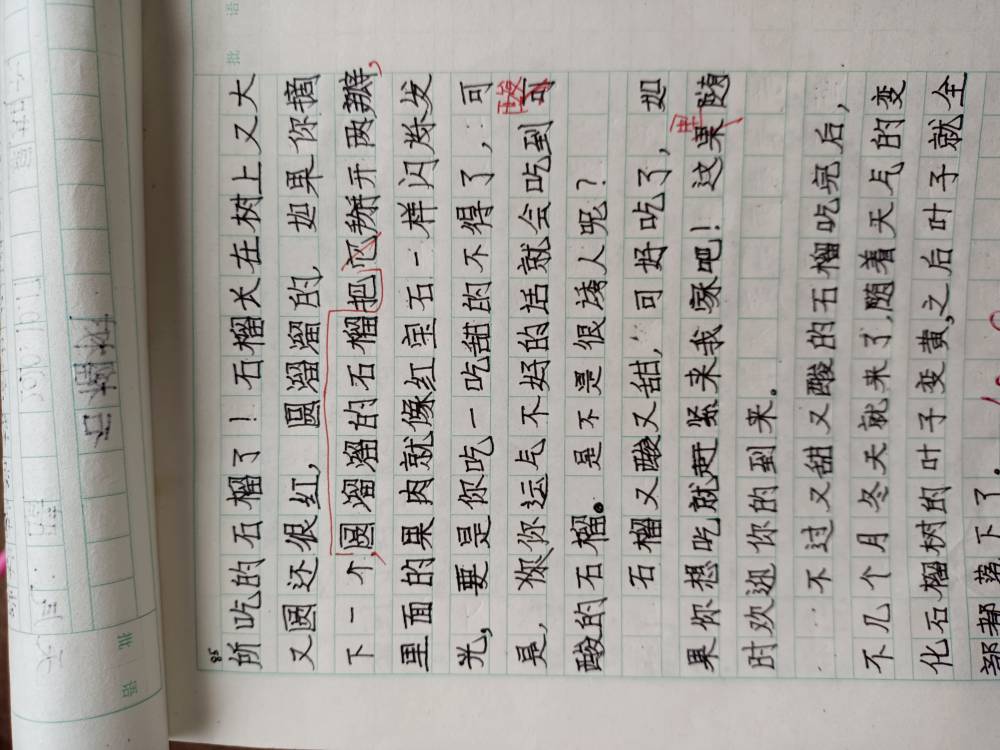 石榴树
批语
批语
58
所吃的石榴了！石榴长在树上又大
又圆还很红，圆溜溜的，如果你摘
下一个，圆溜溜的石榴把它掰开两瓣，
里面的果肉就像红宝石一样闪烁发
光，要是你吃一吃甜的不得了，可
是，你运气不好的话就会吃到可
酸
酸的石榴。是不是很诱人呢？
石榴又酸又甜，可好吃了，如
果你想吃就赶紧来我家吧！这果随
里
时欢迎你的到来。
不过又甜又酸的石榴吃完后，
不几个月冬天就来了，随着天气的变
化石榴树的叶子变黄，之后叶子就全
部都落下了。